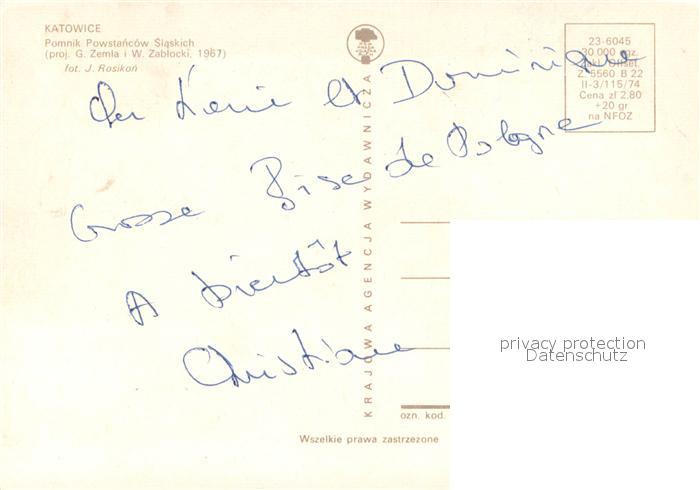 KATOWICE
Pomnik Powstańców Śląskich
(proj. G. Zemła i W. Zabłocki, 1967)
fot. J. Rosikoń
23-6045
30.000 egz.
Zakł. Offset.
Z. 5560 B 22
II-3/115/74
Cena zł 2.80
+20 gr
na NFOZ
et Dominique
Grosse Bise de Pologne
A bientôt
Christiane
KRAJOWA AGENCJA WYDAWNICZA
privacy protection
Datenschutz
ozn. kod.
Wszelkie prawa zastrzeżone